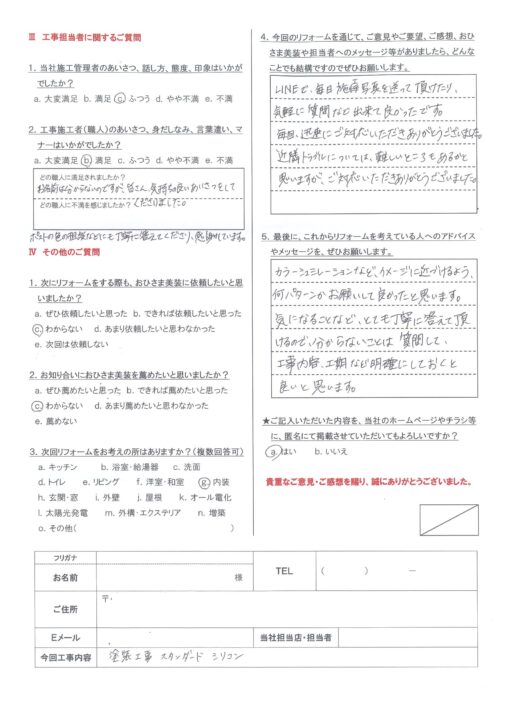 Ⅲ 工事担当者に関するご質問
1. 当社施工管理者のあいさつ、話し方、態度、印象はいかが
でしたか？
a. 大変満足 b. 満足 c. ふつう d. やや不満 e. 不満
2. 工事施工者(職人)のあいさつ、身だしなみ、言葉遣い、マ
ナーはいかがでしたか？
a. 大変満足 b. 満足 c. ふつう d. やや不満 e. 不満
どの職人に満足されましたか？
お名前は分からないのですが、皆さん、気持ちの良いあいさつをして
どの職人に不満を感じましたか？
くださいました。
ポストの色の相談などにも丁寧に答えてくださり、感謝しています。
Ⅳ その他のご質問
1. 次にリフォームをする際も、おひさま美装に依頼したいと思
いましたか？
a. ぜひ依頼したいと思った b. できれば依頼したいと思った
c. わからない d. あまり依頼したいと思わなかった
e. 次回は依頼しない
2. お知り合いにおひさま美装を薦めたいと思いましたか？
a. ぜひ薦めたいと思った b. できれば薦めたいと思った
c. わからない d. あまり薦めたいと思わなかった
e. 薦めない
3. 次回リフォームをお考えの所はありますか？(複数回答可)
a. キッチン b. 浴室・給湯器 c. 洗面
d. トイレ e. リビング f. 洋室・和室 g. 内装
h. 玄関・窓 i. 外壁 j. 屋根 k. オール電化
l. 太陽光発電 m. 外構・エクステリア n. 増築
o. その他( )
4. 今回のリフォームを通じて、ご意見やご要望、ご感想、おひ
さま美装や担当者へのメッセージ等がありましたら、どんな
ことでも結構ですのでぜひお願いします。
LINEで、毎日施工写真を送って頂けたり、
気軽に質問など出来て良かったです。
毎回、迅速にご対応いただきありがとうございました。
近隣トラブルについては、難しいところもあるかと
思いますが、ご対応いただきありがとうございました。
5. 最後に、これからリフォームを考えている人へのアドバイス
やメッセージを、ぜひお願いします。
カラーシュミレーションなど、イメージに近づけるよう、
何パターンかお願いして良かったと思います。
気になることなど、とても丁寧に答えて頂
けるので、分からないことは質問して、
工事内容、工期など明確にしておくと
良いと思います。
★ご記入いただいた内容を、当社のホームページやチラシ等
に、匿名にて掲載させていただいてもよろしいですか？
a. はい b. いいえ
貴重なご意見・ご感想を賜り、誠にありがとうございました。
フリガナ
お名前 様 TEL ( ) －
ご住所 〒-
Eメール 当社担当店・担当者
今回工事内容 塗装工事 スタンダード シリコン